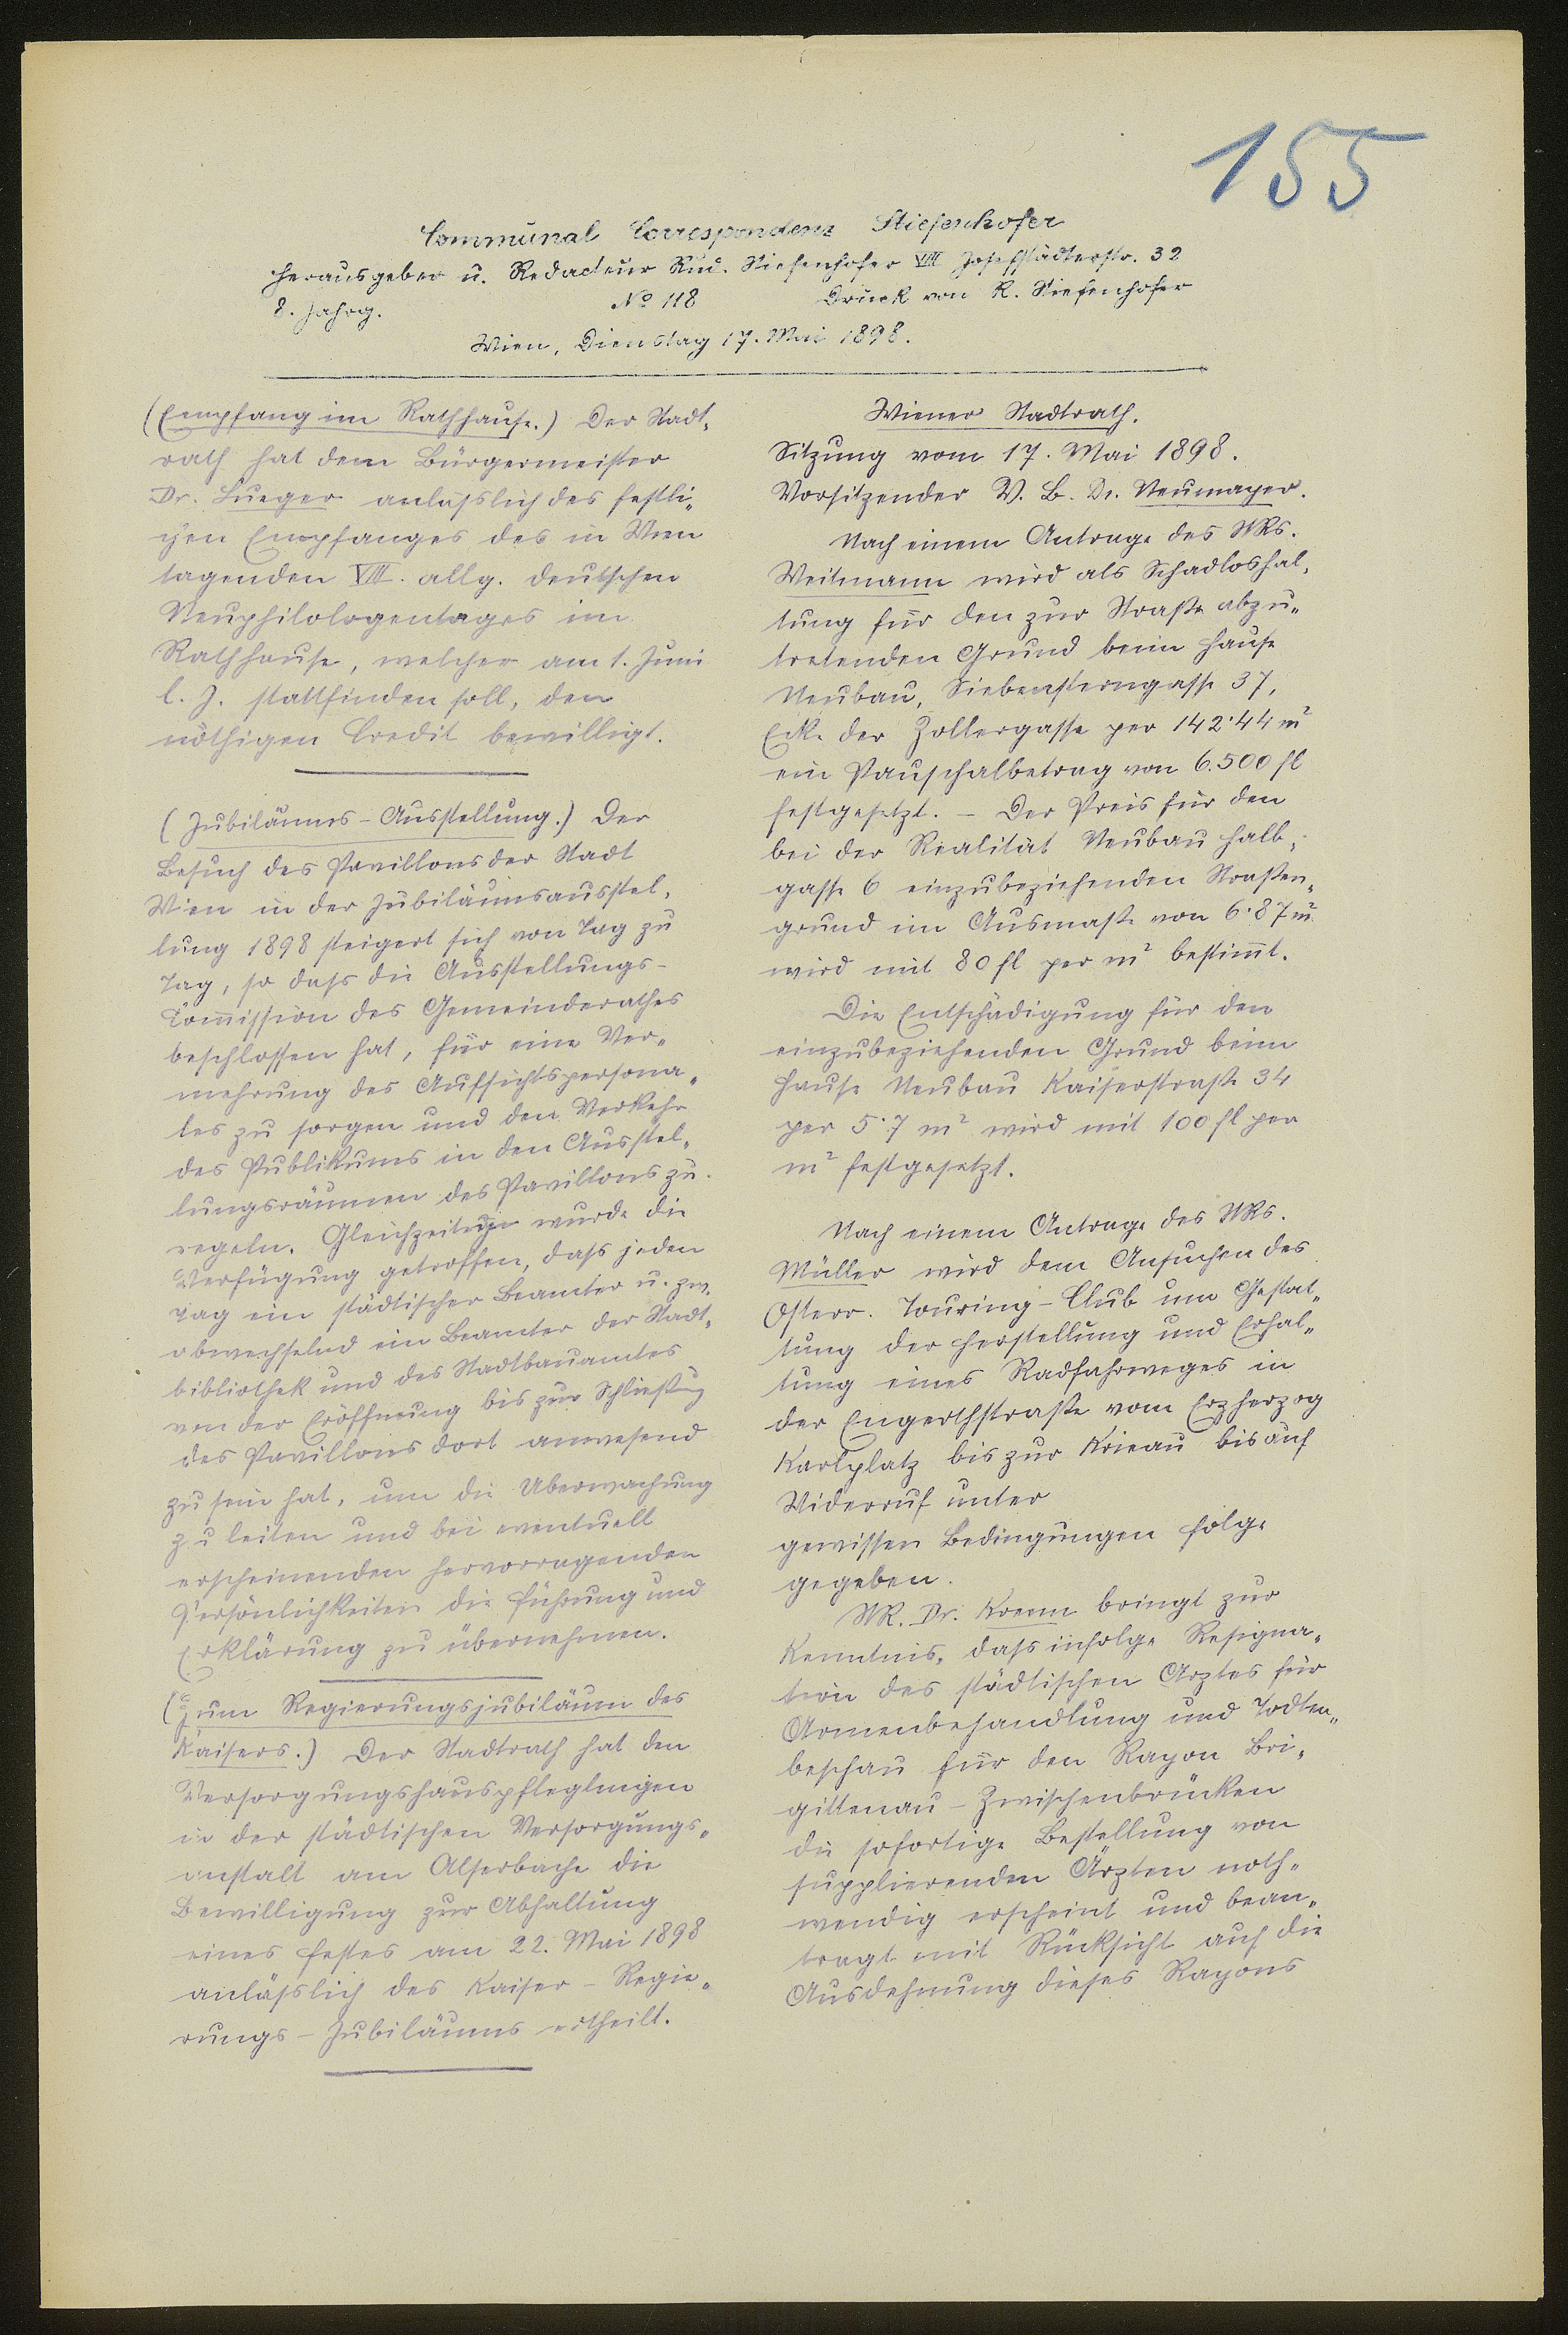 155
Communal Correspondenz Stiefenhofer
Herausgeber u. Redacteur Rud. Stiefenhofer VIII Josefstädterstr. 32
8. Jahrg. No 118 Druck von R. Stiefenhofer
Wien, Dienstag 17. Mai 1898.
(Empfang im Rathhause.) Der Stadt„
rath hat dem Bürgermeister
Dr. Lueger anläßlich des festli„
chen Empfanges des in Wien
tagenden VIII. allg. deutschen
Neuphilologentages im
Rathhause, welcher am 1. Juni
l. J. stattfinden soll, den
nöthigen Credit bewilligt.
(Jubiläums-Ausstellung.) Der
Besuch des Pavillons der Stadt
Wien in der Jubiläumsausstel„
lung 1898 steigert sich von Tag zu
Tag, so daß die Ausstellungs-
Com̅ission des Gemeinderathes
beschlossen hat, für eine Ver„
mehrung des Aufsichtspersona„
les zu sorgen und den Verkehr
des Publikums in den Ausstel„
lungsräumen des Pavillons zu
regeln. Gleichzeitig wurde die
Verfügung getroffen, daß jeden
Tag ein städtischer Beamter u. zw.
abwechselnd ein Beamter der Stadt„
bibliothek und des Stadtbauamtes
von der Eröffnung bis zur Schließung
des Pavillons dort anwesend
zu sein hat, um die Überwachung
zu leiten und bei eventuell
erscheinenden hervorragenden
Persönlichkeiten die Führung und
Erklärung zu übernehmen.
(Zum Regierungsjubiläum des
Kaisers.) Der Stadtrath hat den
Versorgungshauspfleglingen
in der städtischen Versorgungs„
anstalt am Alserbache die
Bewilligung zur Abhaltung
eines Festes am 22. Mai 1898
anläßlich des Kaiser-Regie„
rungs-Jubiläums ertheilt.
Wiener Stadtrath.
Sitzung vom 17. Mai 1898.
Vorsitzender V. B. Dr. Neumayer.
Nach einem Antrage des StRs.
Weitmann wird als Schadloshal„
tung für den zur Straße abzu„
tretenden Grund beim Hause
Neubau, Siebensterngasse 37,
Ecke der Zollergasse per 142·44 m²
ein Pauschalbetrag von 6.500 fl
festgesetzt. – Der Preis für den
bei der Realität Neubau Halb„
gasse 6 einzubeziehenden Straßen„
grund im Ausmaße von 6·87 m²
wird mit 80 fl per m² bestim̅t.
Die Entschädigung für den
einzubeziehenden Grund beim
Hause Neubau Kaiserstraße 34
per 5·7 m² wird mit 100 fl per
m² festgesetzt.
Nach einem Antrage des StRs.
Müller wird dem Ansuchen des
Österr. Touring-Club um Gestat„
tung der Herstellung und Erhal„
tung eines Radfahrweges in
der Engerthstraße vom Erzherzog
Karlplatz bis zur Krieau bis auf
Widerruf unter
gewissen Bedingungen Folge
gegeben.
StR. Dr. Krenn bringt zur
Kenntnis, daß infolge Resigna„
tion des städtischen Arztes für
Armenbehandlung und Todten„
beschau für den Rayon Bri„
gittenau-Zwischenbrücken
die sofortige Bestellung von
supplierenden Ärzten noth„
wendig erscheint und bean„
tragt mit Rücksicht auf die
Ausdehnung dieses Rayons